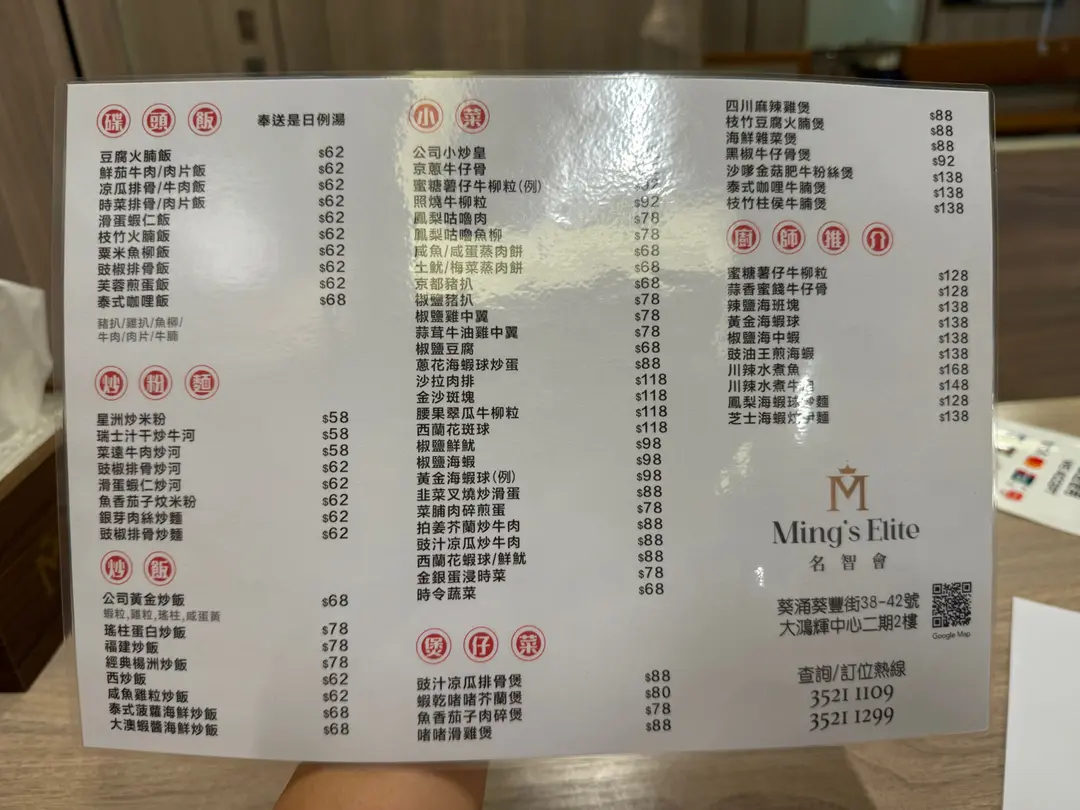 碟頭飯 奉送是日例湯
豆腐火腩飯 $62
鮮茄牛肉/肉片飯 $62
凉瓜排骨/牛肉飯 $62
時菜排骨/肉片飯 $62
滑蛋蝦仁飯 $62
枝竹火腩飯 $62
粟米魚柳飯 $62
豉椒排骨飯 $62
芙蓉煎蛋飯 $62
泰式咖哩飯 $68
豬扒/雞扒/魚柳/
牛肉/肉片/牛腩
炒粉麵
星洲炒米粉 $58
瑞士汁干炒牛河 $58
菜遠牛肉炒河 $58
豉椒排骨炒河 $62
滑蛋蝦仁炒河 $62
魚香茄子炆米粉 $62
銀芽肉絲炒麵 $62
豉椒排骨炒麵 $62
炒飯
公司黃金炒飯 $68
蝦粒,雞粒,瑤柱,咸蛋黃
瑤柱蛋白炒飯 $78
福建炒飯 $78
經典楊洲炒飯 $78
西炒飯 $62
咸魚雞粒炒飯 $62
泰式菠蘿海鮮炒飯 $68
大澳蝦醬海鮮炒飯 $68
小菜
公司小炒皇
京蔥牛仔骨
蜜糖薯仔牛柳粒(例)
照燒牛柳粒 $92
鳳梨咕嚕肉 $78
鳳梨咕嚕魚柳 $78
咸魚/咸蛋蒸肉餅 $68
土魷/梅菜蒸肉餅 $68
京都豬扒 $68
椒鹽豬扒 $78
椒鹽雞中翼 $78
蒜茸牛油雞中翼 $78
椒鹽豆腐 $68
蔥花海蝦球炒蛋 $88
沙拉肉排 $118
金沙斑塊 $118
腰果翠瓜牛柳粒 $118
西蘭花斑球 $118
椒鹽鮮魷 $98
椒鹽海蝦 $98
黃金海蝦球(例) $98
韭菜叉燒炒滑蛋 $88
菜脯肉碎煎蛋 $78
拍姜芥蘭炒牛肉 $88
豉汁凉瓜炒牛肉 $88
西蘭花蝦球/鮮魷 $88
金銀蛋浸時菜 $78
時令蔬菜 $68
煲仔菜
豉汁凉瓜排骨煲 $88
蝦乾啫啫芥蘭煲 $80
魚香茄子肉碎煲 $78
啫啫滑雞煲 $88
四川麻辣雞煲 $88
枝竹豆腐火腩煲 $88
海鮮雜菜煲 $88
黑椒牛仔骨煲 $92
沙嗲金菇肥牛粉絲煲 $138
泰式咖哩牛腩煲 $138
枝竹柱侯牛腩煲 $138
廚師推介
蜜糖薯仔牛柳粒 $128
蒜香蜜餞牛仔骨 $128
辣鹽海班塊 $138
黃金海蝦球 $138
椒鹽海中蝦 $138
豉油王煎海蝦 $138
川辣水煮魚 $168
川辣水煮牛 $148
鳳梨海蝦球炒麵 $128
芝士海蝦炆伊麵 $138
M
Ming's Elite
名智會
葵涌葵豐街38-42號
大鴻輝中心二期2樓
Google Map
查詢/訂位熱線
3521 1109
3521 1299